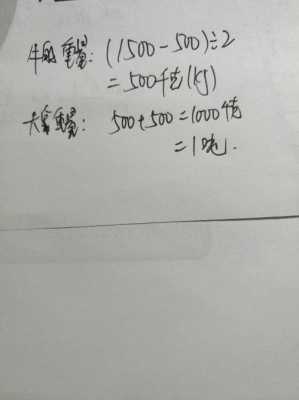 牛的重量: (1500-500)÷2
=500千克(kg)
大象重量: 500+500=1000千克
=1吨.